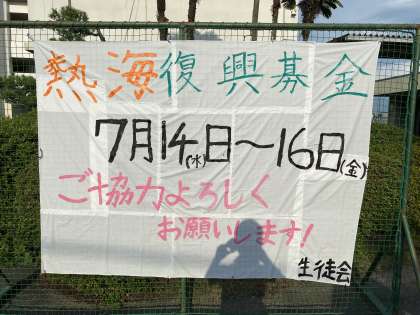 熱海復興募金
7月14日(水)～16日(金)
ご協力よろしく
お願いします!
生徒会